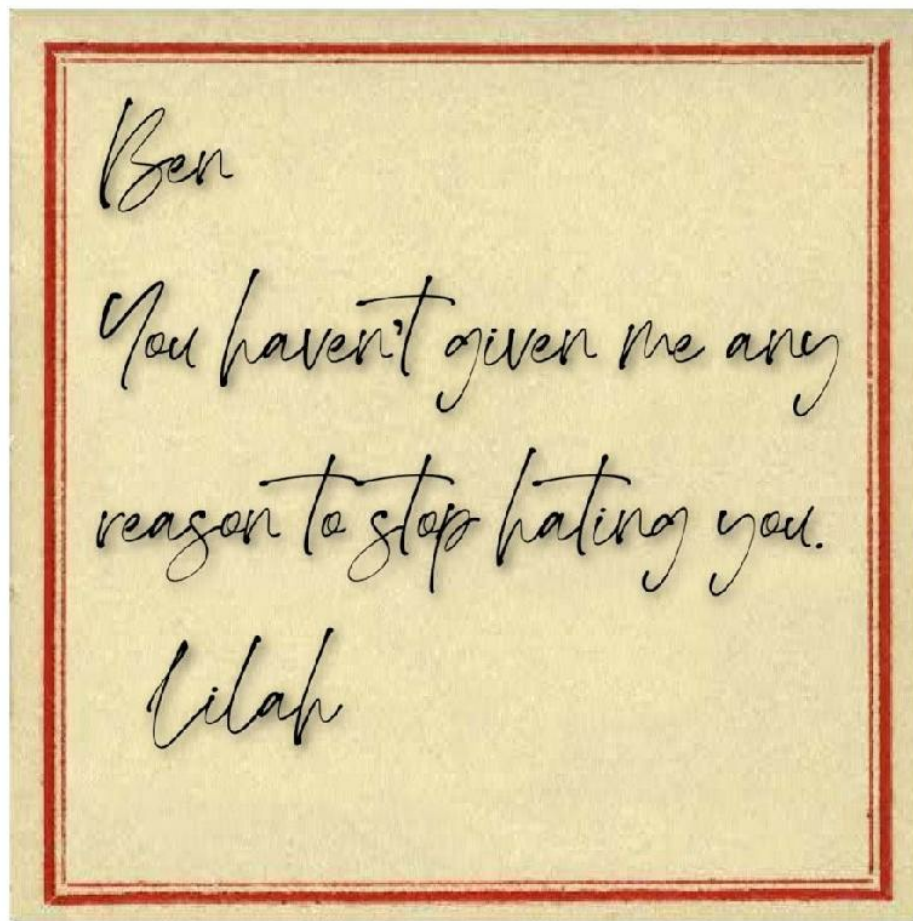 Ben
You haven't given me any
reason to stop hating you.
Lilah